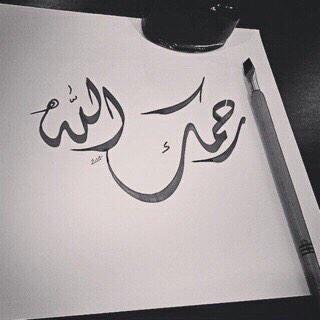 رحمك الله